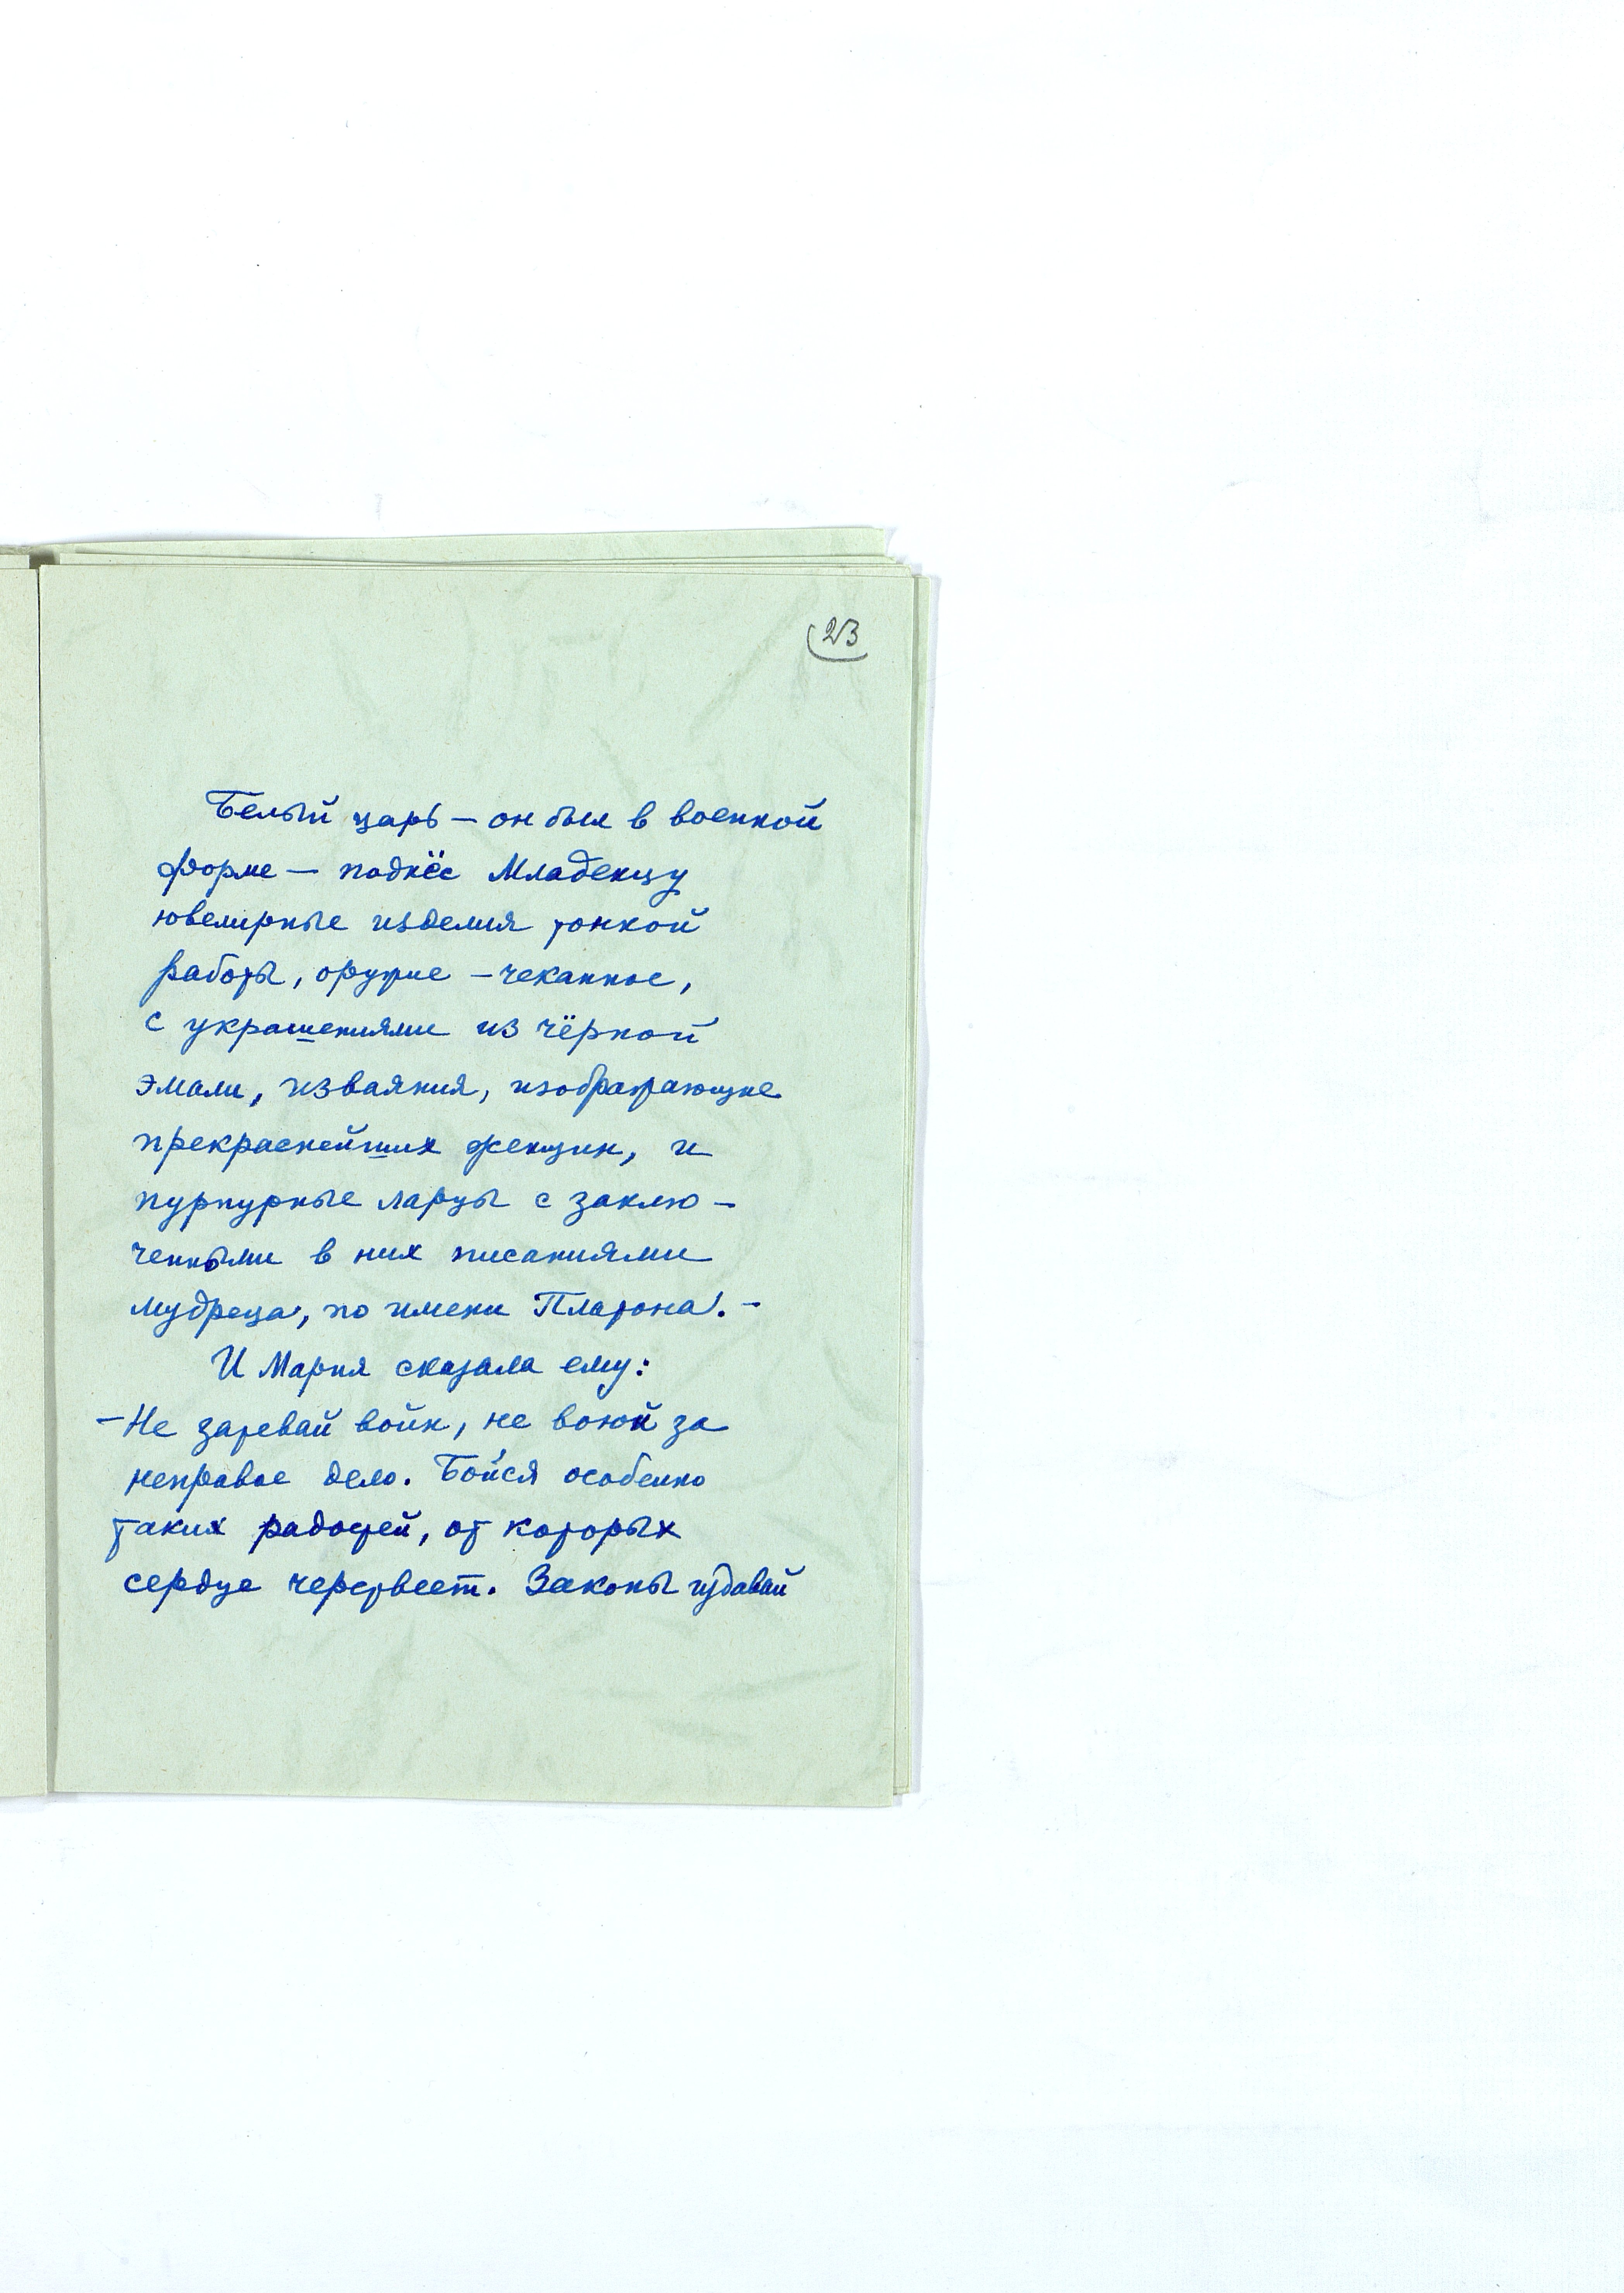 23
Белый царь — он был в военной
форме — поднёс Младенцу
ювелирные изделия тонкой
работы, оружие — чеканное,
с украшениями из чёрной
эмали, изваяния, изображающие
прекраснейших женщин, и
пурпурные ларцы с заклю-
ченными в них писаниями
мудреца, по имени Платона. —
И Мария сказала ему:
— Не затевай войн, не воюй за
неправое дело. Бойся особенно
таких радостей, от которых
сердце черствеет. Законы издавай